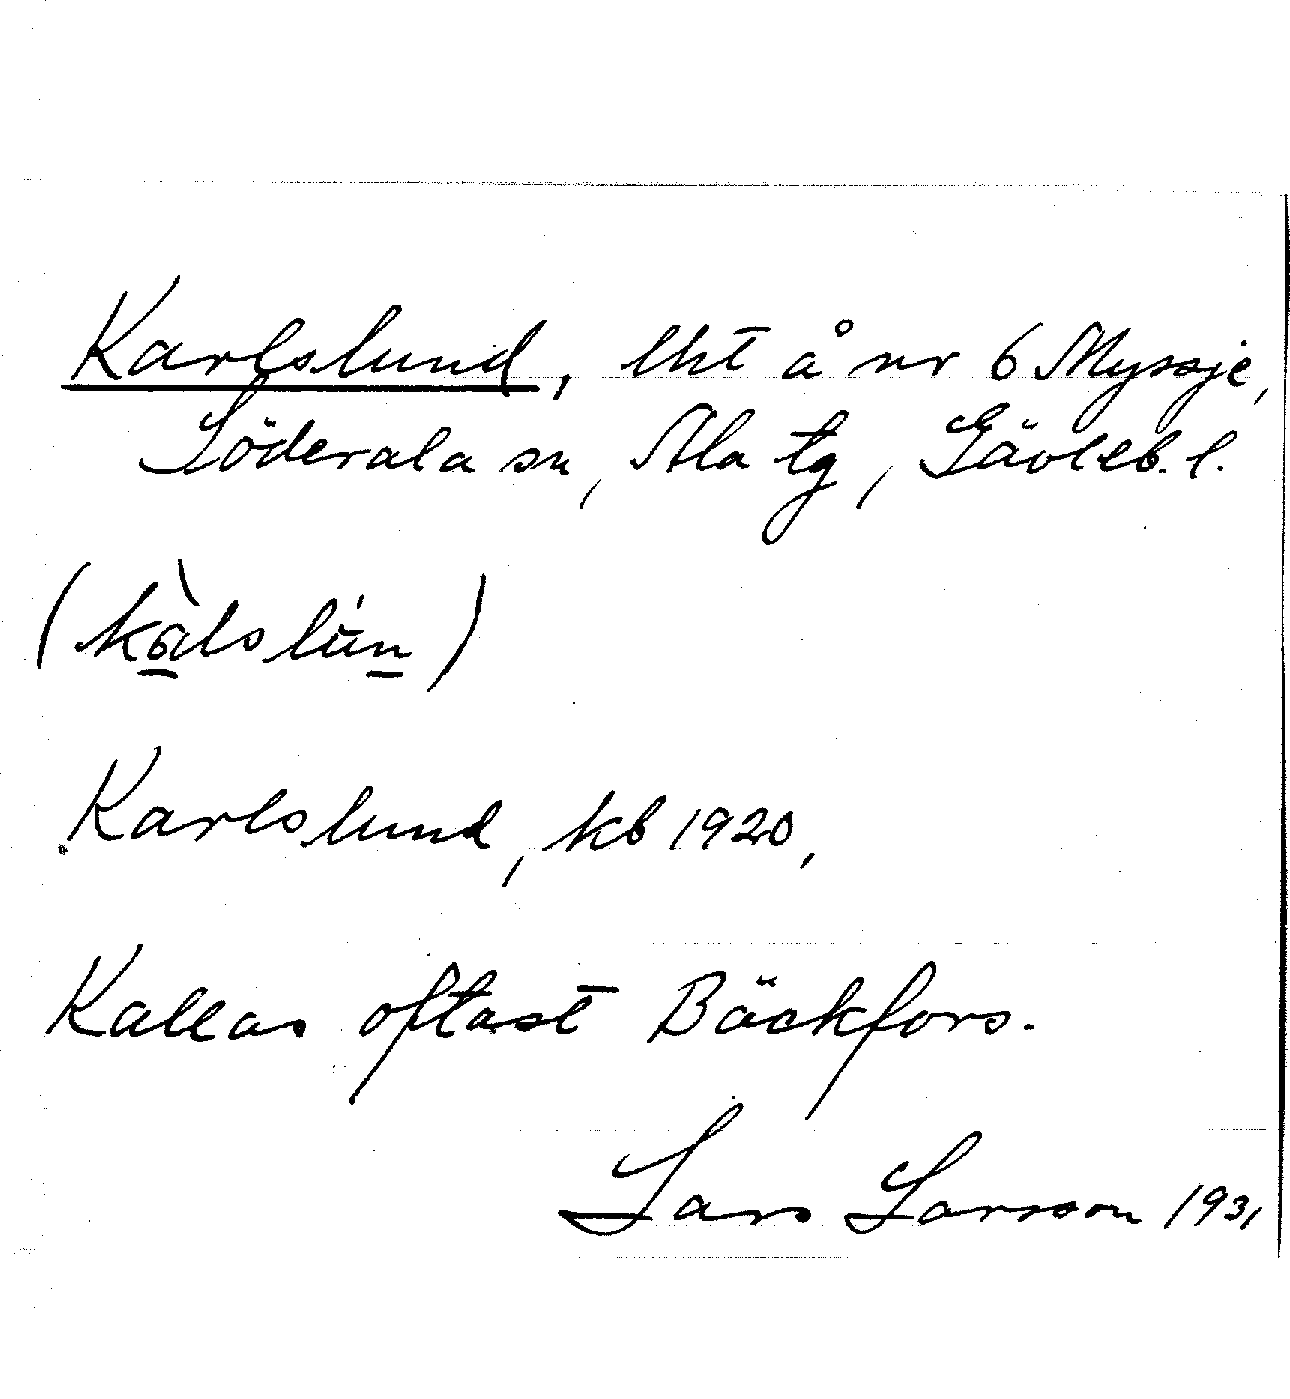 Karlslund, lht å nr 6 Myssje,
Söderala sn, Ala tg, Gävleb. l.
Karlslund, kb 1920,
Kallas oftast Bäckfors.
Lars Larsson 1931